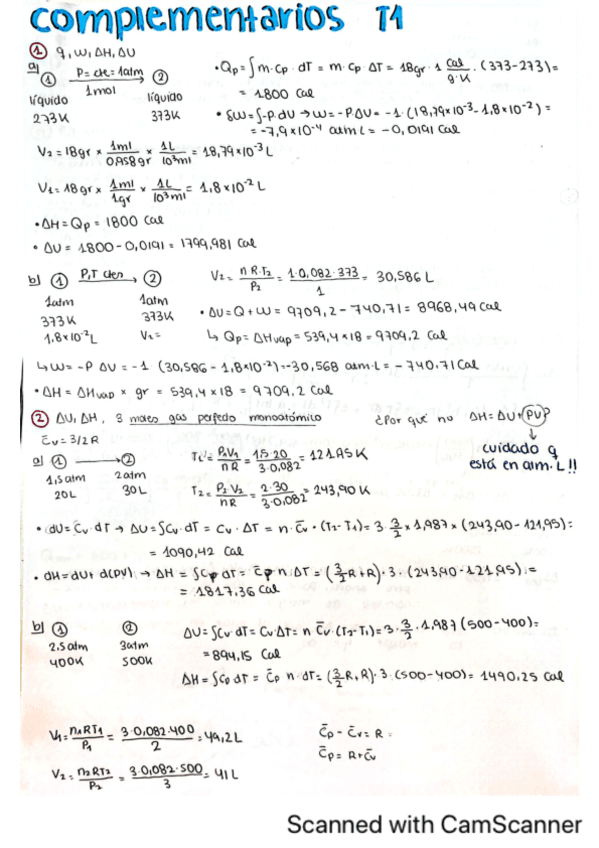 complementarios T1
① q, w, ΔH, ΔU
a) ① P=cte=1atm ②
1mol
líquido líquido
273K 373K
• Qp = ∫m·Cp·dT = m·Cp ΔT = 18gr·1 cal/g·K · (373-273)=
= 1800 cal
• δW=∫-P·dV → W=-P·ΔV= -1·(18,79×10⁻³-1,8×10⁻²)=
= -7,9×10⁻⁴ atm L = -0,0191 cal
V₂=18gr × 1ml/0,958gr × 1L/10³ml = 18,79×10⁻³ L
V₁=18gr × 1ml/1gr × 1L/10³ml = 1,8×10⁻² L
• ΔH=Qp = 1800 cal
• ΔU = 1800-0,0191 = 1799,981 cal
b) ① P,T cten ②
1atm 1atm
373K 373K
1,8×10⁻²L V₂=
V₂= nR·T₂/P₂ = 1·0,082·373/1 = 30,586 L
• ΔU=Q+W = 9709,2-740,71= 8968,49 cal
↳ Qp=ΔHvap=539,4×18=9709,2 cal
↳ W=-P ΔV= -1 (30,586-1,8×10⁻²)=-30,568 atm·L= -740,71 cal
• ΔH = ΔHvap × gr = 539,4×18 = 9709,2 cal
② ΔU, ΔH, 3 moles gas perfecto monoatómico
C̄v=3/2R
¿Por qué no ΔH=ΔU+(PV)?
↓
cuidado q
está en atm.L !!
a) ① → ②
1,5atm 2atm
20L 30L
T₁= P₁V₁/nR = 1,5·20/3·0,082 = 121,95K
T₂= P₂V₂/nR = 2·30/3·0,082 = 243,90K
• dU=Cv·dT → ΔU=∫Cv·dT = Cv·ΔT = n·C̄v·(T₂-T₁)=3·3/2×1,987×(243,90-121,95)=
= 1090,42 cal
• dH=dU+d(PV) → ΔH = ∫Cp dT = C̄p n ΔT = (3/2R+R)·3·(243,90-121,95)=
= 1817,36 cal
b) ① ②
2,5atm 3atm
400K 500K
ΔU=∫Cv·dT=Cv·ΔT= n C̄v·(T₂-T₁)=3·3/2·1,987(500-400)=
=894,15 cal
ΔH=∫Cp dT = C̄p n dT=(3/2R+R)·3·(500-400)= 1490,25 cal
V₁= n₁RT₁/P₁ = 3·0,082·400/2 = 49,2L
V₂= n₂RT₂/P₂ = 3·0,082·500/3 = 41L
C̄p - C̄v = R
C̄p = R+C̄v
Scanned with CamScanner